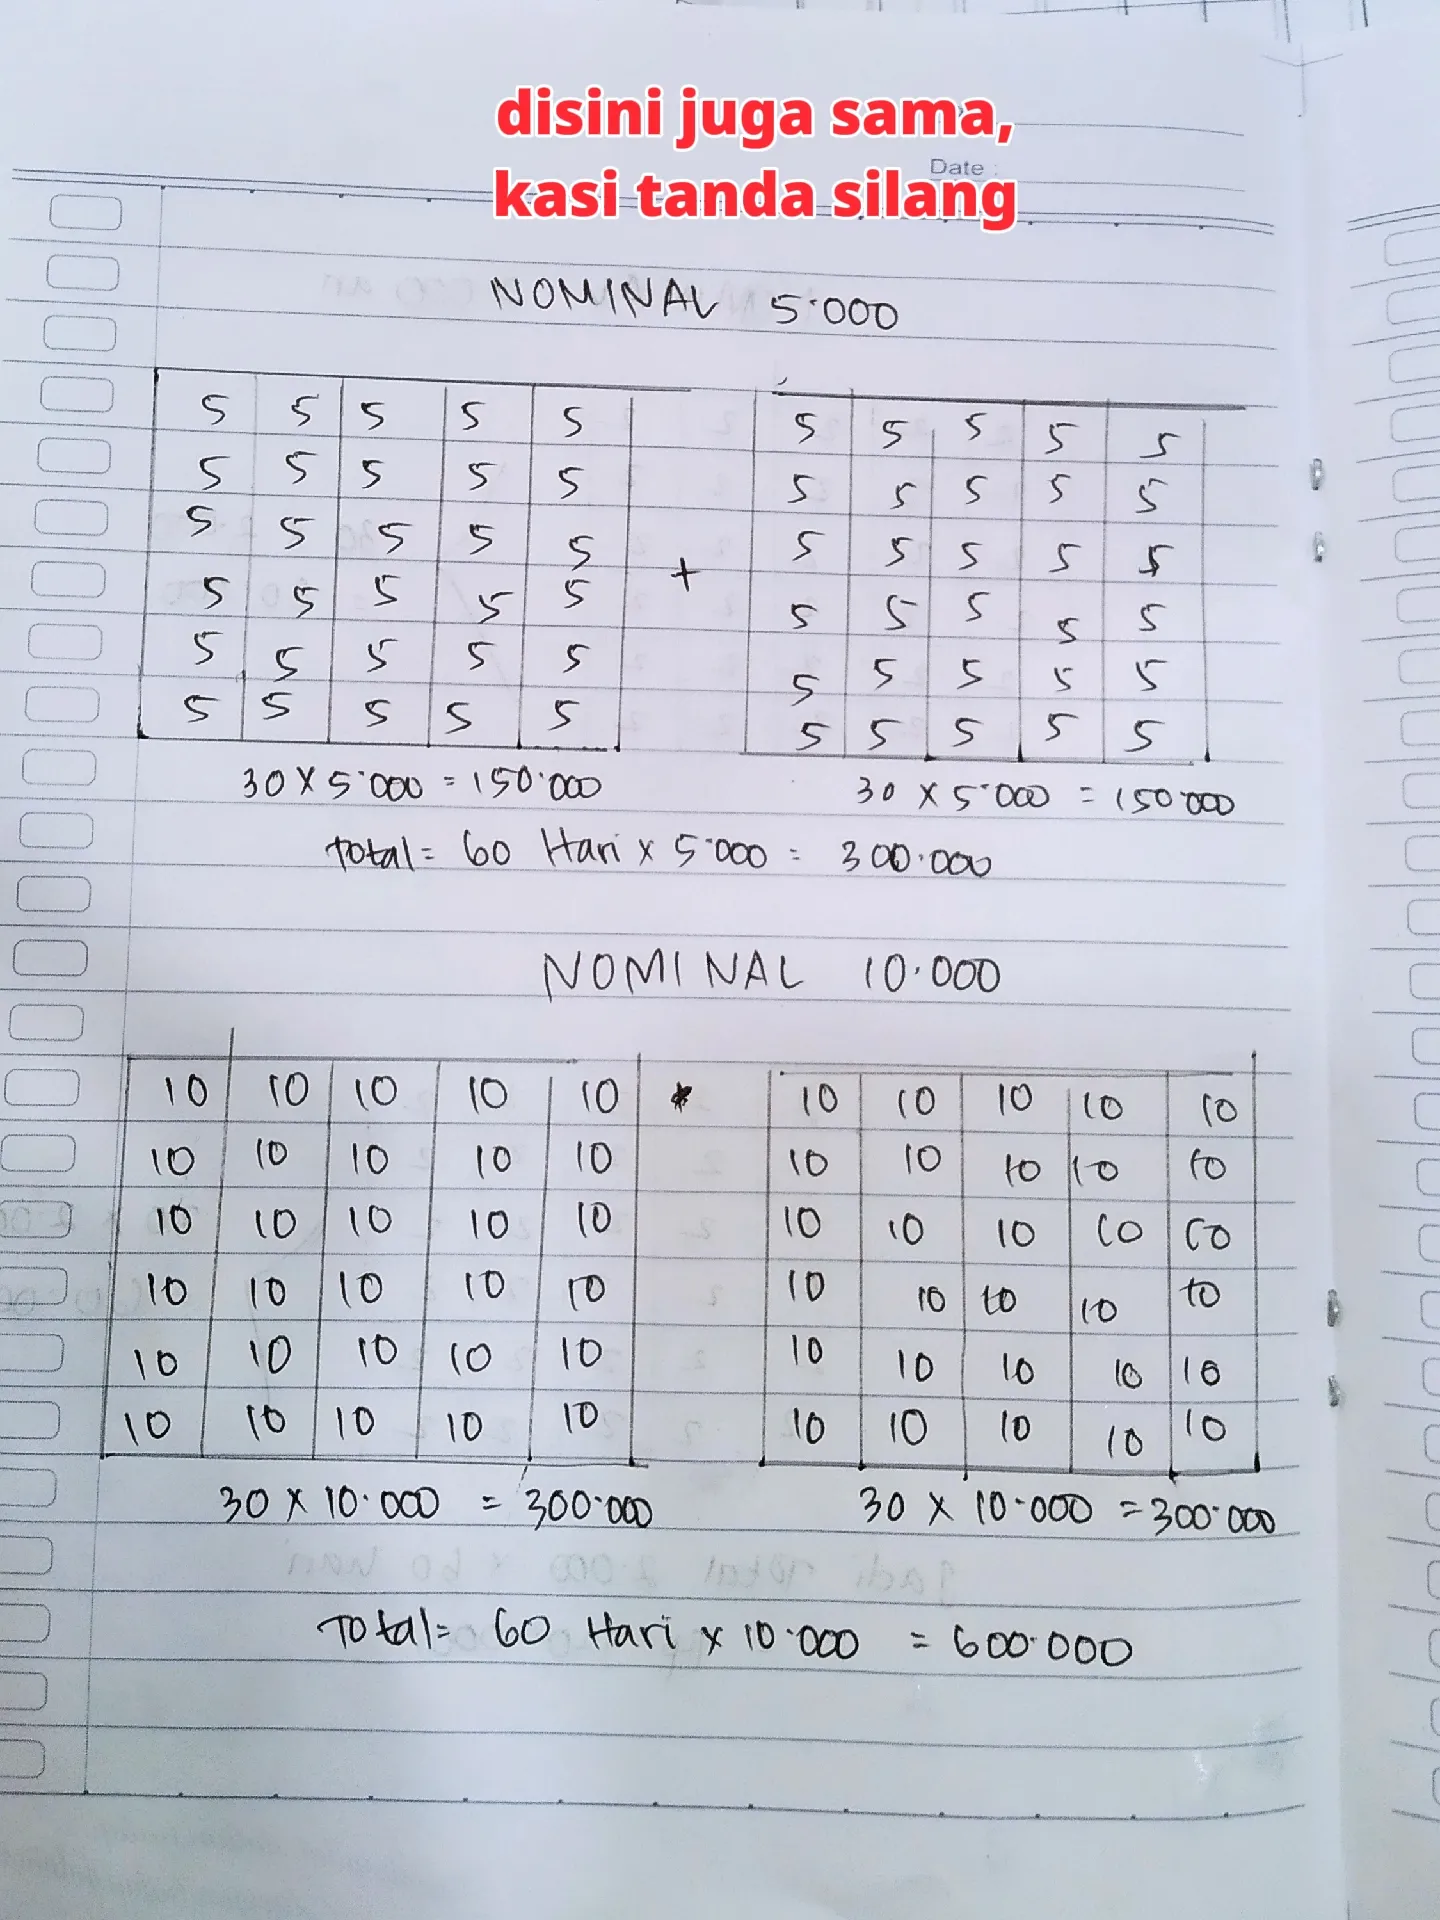 disini juga sama,
kasi tanda silang
Date :
NOMINAL 5.000
5 5 5 5 5 5 5 5 5 5
5 5 5 5 5 5 5 5 5 5
5 5 5 5 5 + 5 5 5 5 5
5 5 5 5 5 5 5 5 5 5
5 5 5 5 5 5 5 5 5 5
5 5 5 5 5 5 5 5 5 5
30 x 5.000 = 150.000 30 x 5.000 = 150.000
Total = 60 Hari x 5.000 = 300.000
NOMINAL 10.000
10 10 10 10 10 * 10 10 10 10 10
10 10 10 10 10 10 10 10 10 10
10 10 10 10 10 10 10 10 10 10
10 10 10 10 10 10 10 10 10 10
10 10 10 10 10 10 10 10 10 10
10 10 10 10 10 10 10 10 10 10
30 x 10.000 = 300.000 30 x 10.000 = 300.000
Total = 60 Hari x 10.000 = 600.000